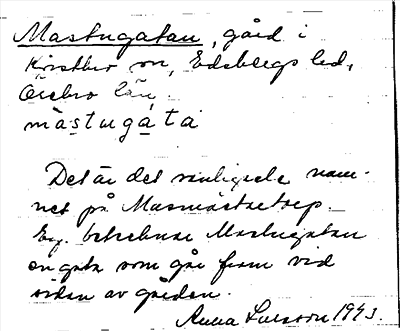 Mastugatan, gård i
Kristbro sn, Edsbergs hd,
Örebro län.
màstugàta
Det är det vanligaste nam-
net på Masmästaetorp.
Eg. betecknar Mastugatan
en gata som går fram vid
sidan av gården.
Anna Larsson 1943.